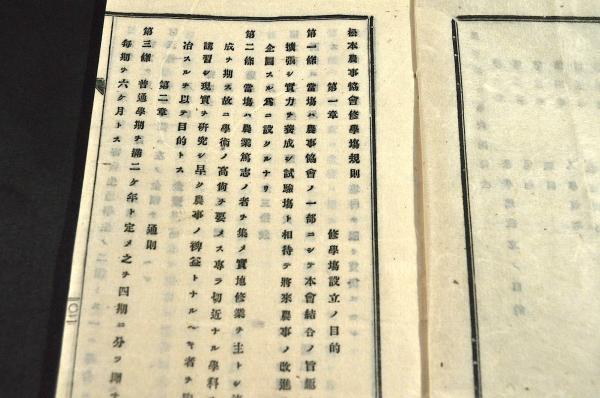 松本農事協會修學塲規則
第一章　修學塲設立ノ目的
第一條　當塲ハ農事協會ノ一部ニシテ本會結合ノ旨趣
擴張シ實力ヲ養成シ試驗塲ト相待テ將來農事ノ改進
企圖スル爲ニ設クルナリ
第二條　當塲ハ農業篤志ノ者ヲ集メ實地修業ヲ主トシ
成ヲ期ス故ニ學術ノ高尚ヲ要メス專ラ切近ナル學科
講習シ現實ヲ研究シ早ク農事ノ裨益トナルヘキ者ヲ
冶スルヲ以テ目的トス
第二章　通則
第三條　普通學期ヲ滿二ケ年ト定メ之ヲ四期ニ分ツ即チ
每期ヲ六ケ月トス